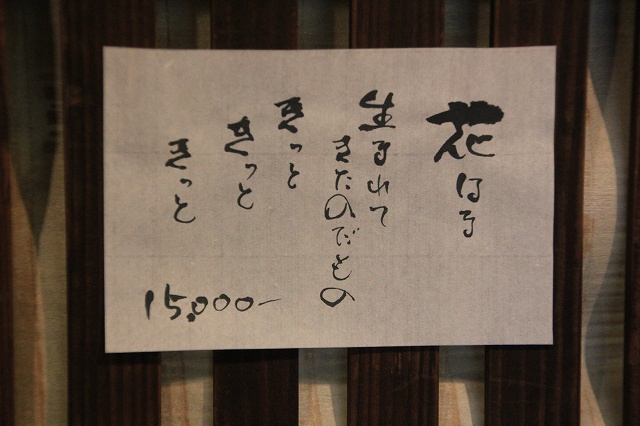 花はる
生まれて
きたのだもの
きっと
きっと
きっと
15,000-